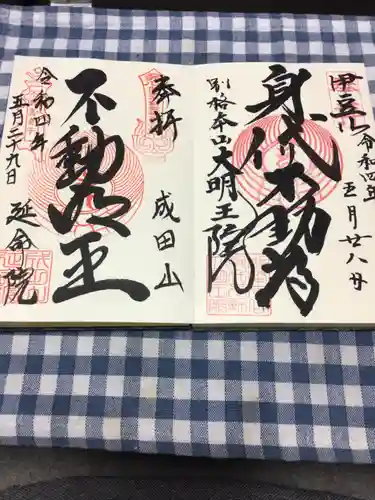 伊豆山
令和四年
五月廿八日
身代不動尊
別格本山大明王院
奉拝
成田山
不動明王
令和四年
五月二十九日
延命院